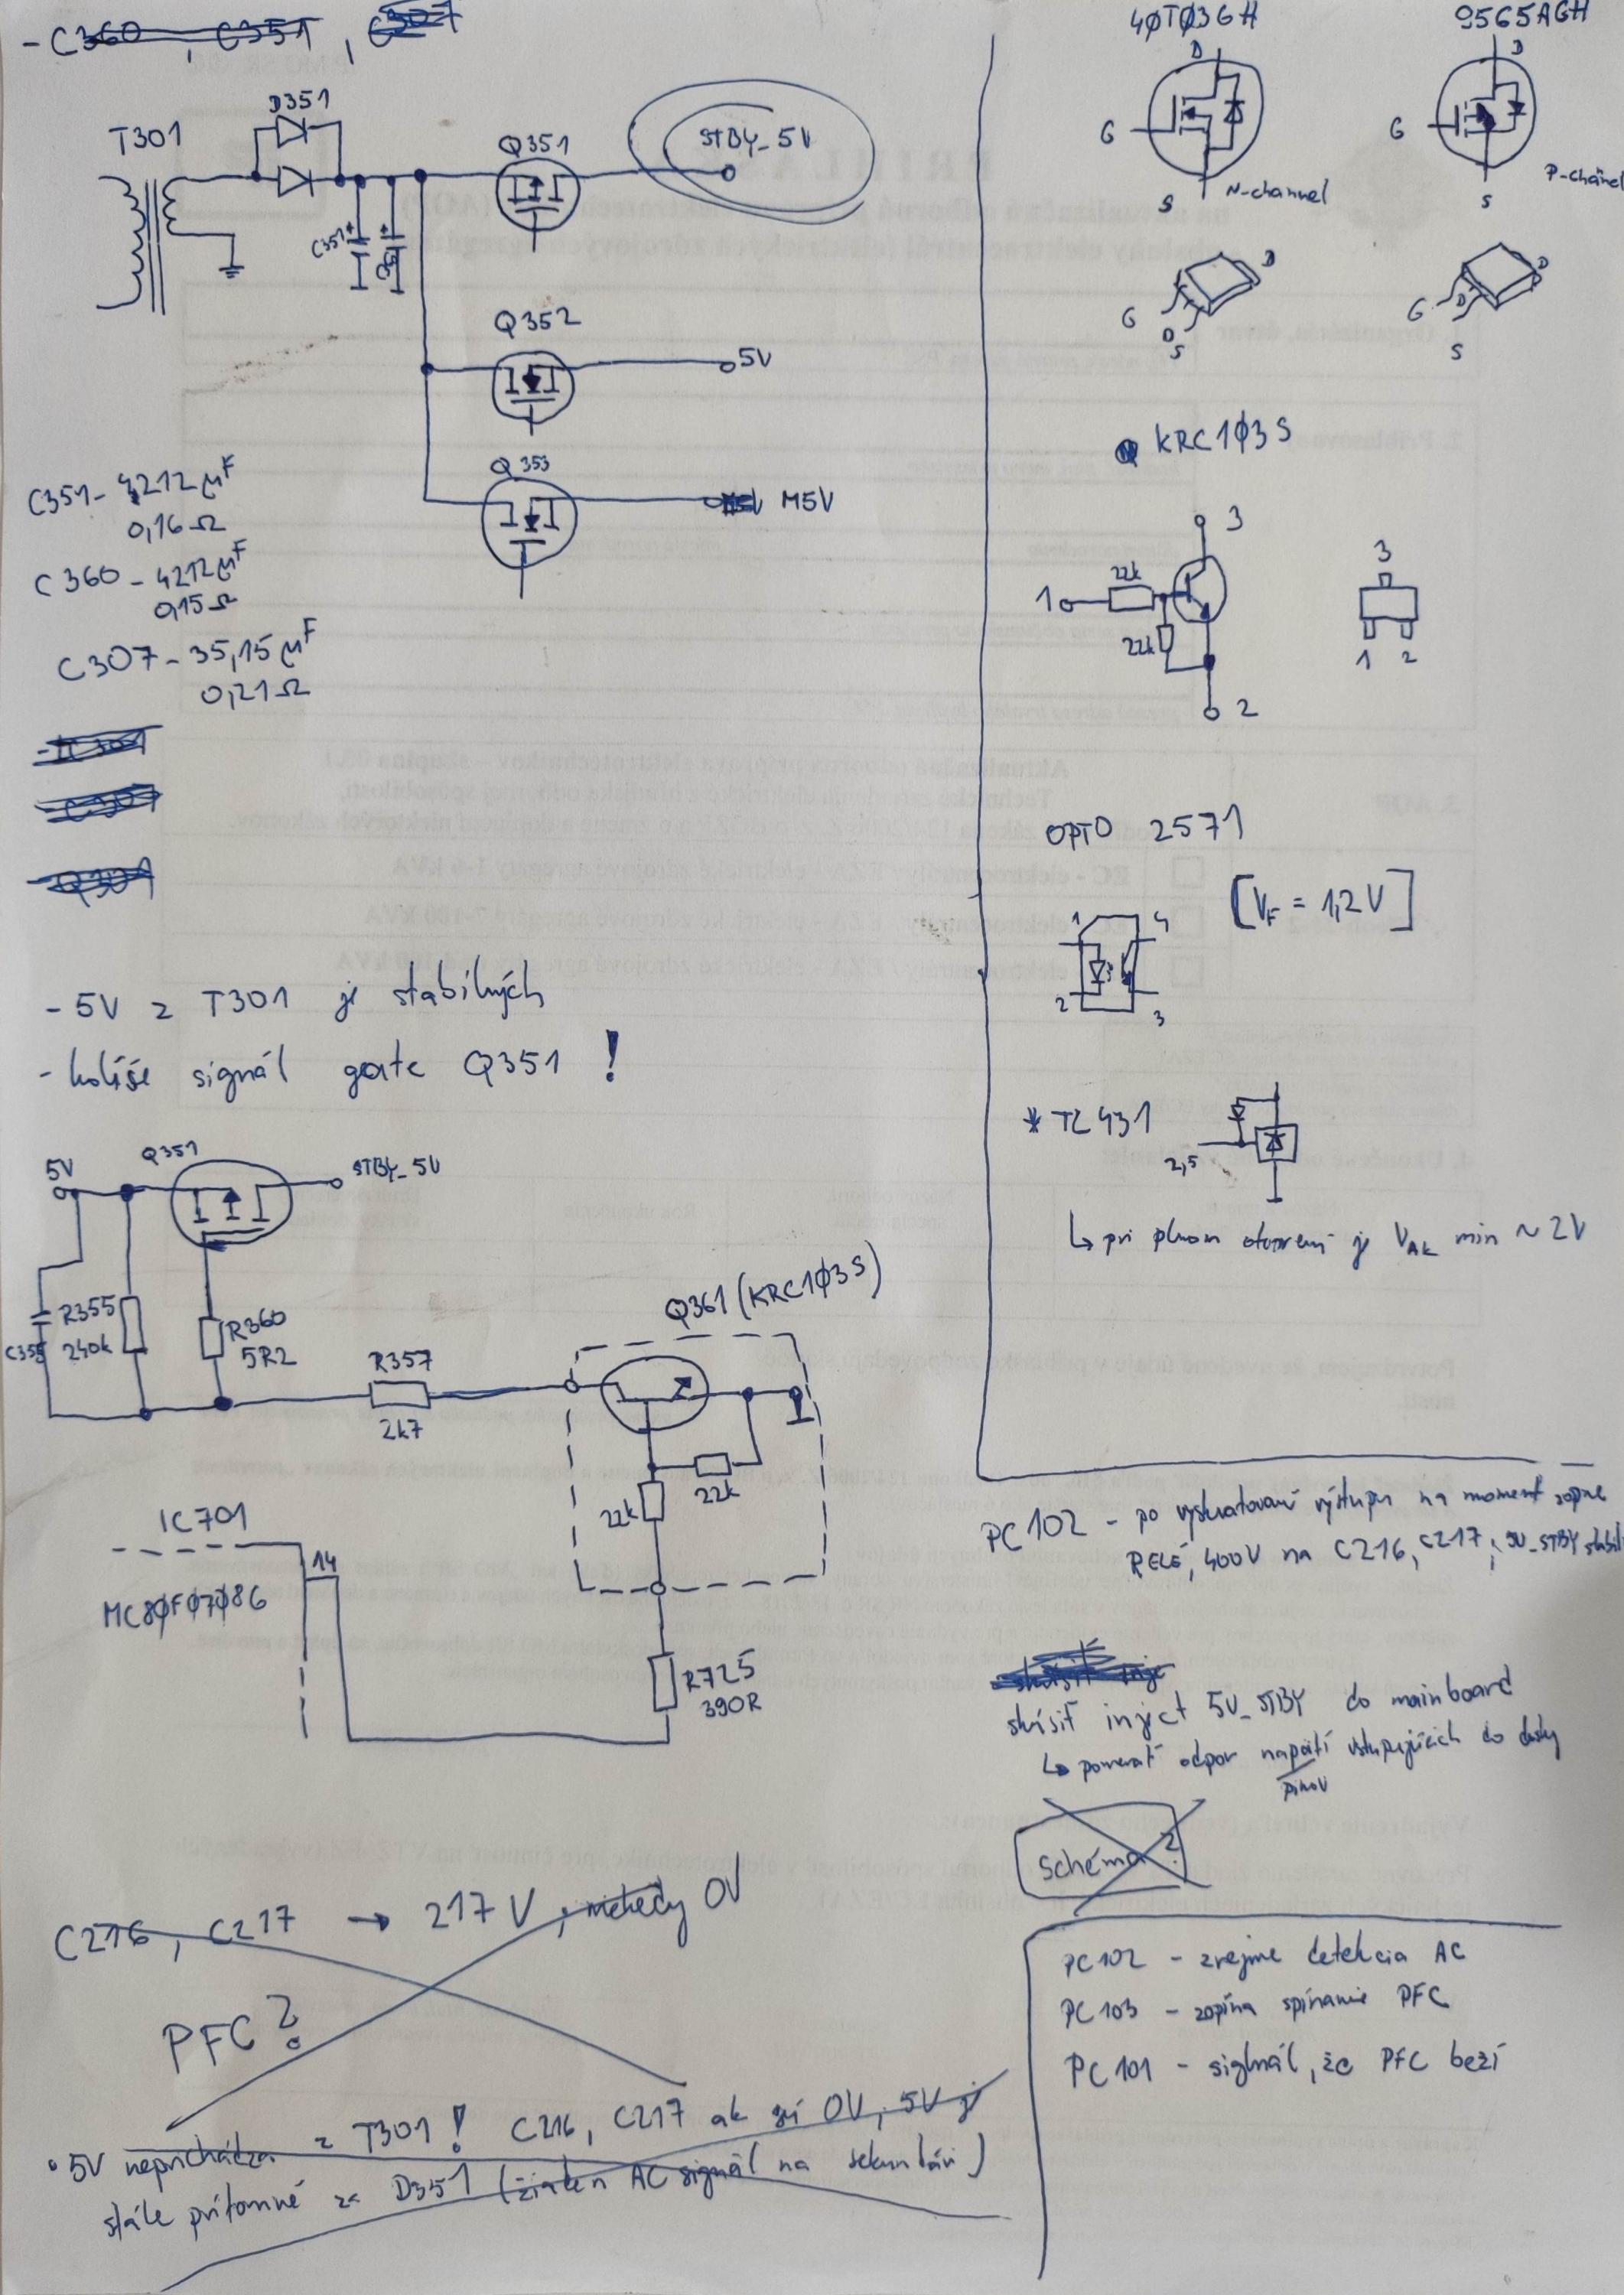 - C360, C351, C307
T301
D351
C351
Q351
STBY_5V
Q352
5V
Q353
M5V
C351 - 4212 µF
0,16 Ω
C360 - 4212 µF
0,15 Ω
C307 - 35,15 µF
0,21 Ω
- C307
- Q301
- 5V z T301 je stabilných
- kolíše signál gate Q351 !
5V
Q351
STBY_5V
C355
R355
240k
R360
5R2
R357
2k7
Q361 (KRC1Ø3S)
22k
22k
IC701
14
MC8ØF07Ø86
R725
390R
C216, C217 → 217V, niekedy 0V
PFC?
• 5V neprichádza z T301! C216, C217 ak sú 0V, 5V je
stále prítomné za D351 (žiaden AC signál na sekundári)
4ØTØ3GH
D
G
S
N-channel
9565AGH
D
G
S
P-channel
G
D
S
D
G
D
S
D
KRC1Ø3S
3
1
22k
22k
2
3
1 2
OPTO 2571
[VF = 1,2V]
1 4
2 3
* TL431
2,5
↳ pri plnom otvorení je VAK min ~2V
PC102 - po vyskratovaní výstupu na moment zopne
RELÉ, 400V na C216, C217; 5V_STBY
skúsiť inject 5V_STBY do mainboard
↳ pomerať odpor napätí vstupujúcich do dosky
pinov
schéma?
PC102 - zrejme detekcia AC
PC103 - zopína spínanie PFC
PC101 - signál, že PFC beží